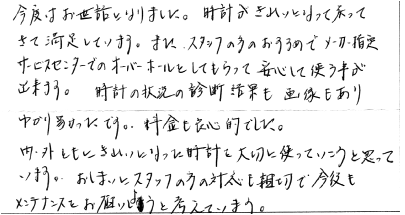 今度はお世話になりました。時計がきれいになって戻って
きて満足しています。また、スタッフの方のおすすめでメーカー指定
サービスセンターでのオーバーホールとしてもらって安心して使う事が
出来ます。時計の状況の診断結果も画像もあり
わかり易かったです。料金も良心的でした。
内・外ともにきれいになった時計を大切に使っていこうと思って
います。おしまいにスタッフの方の対応も親切で今後も
メンテナンスをお願いしようと考えています。